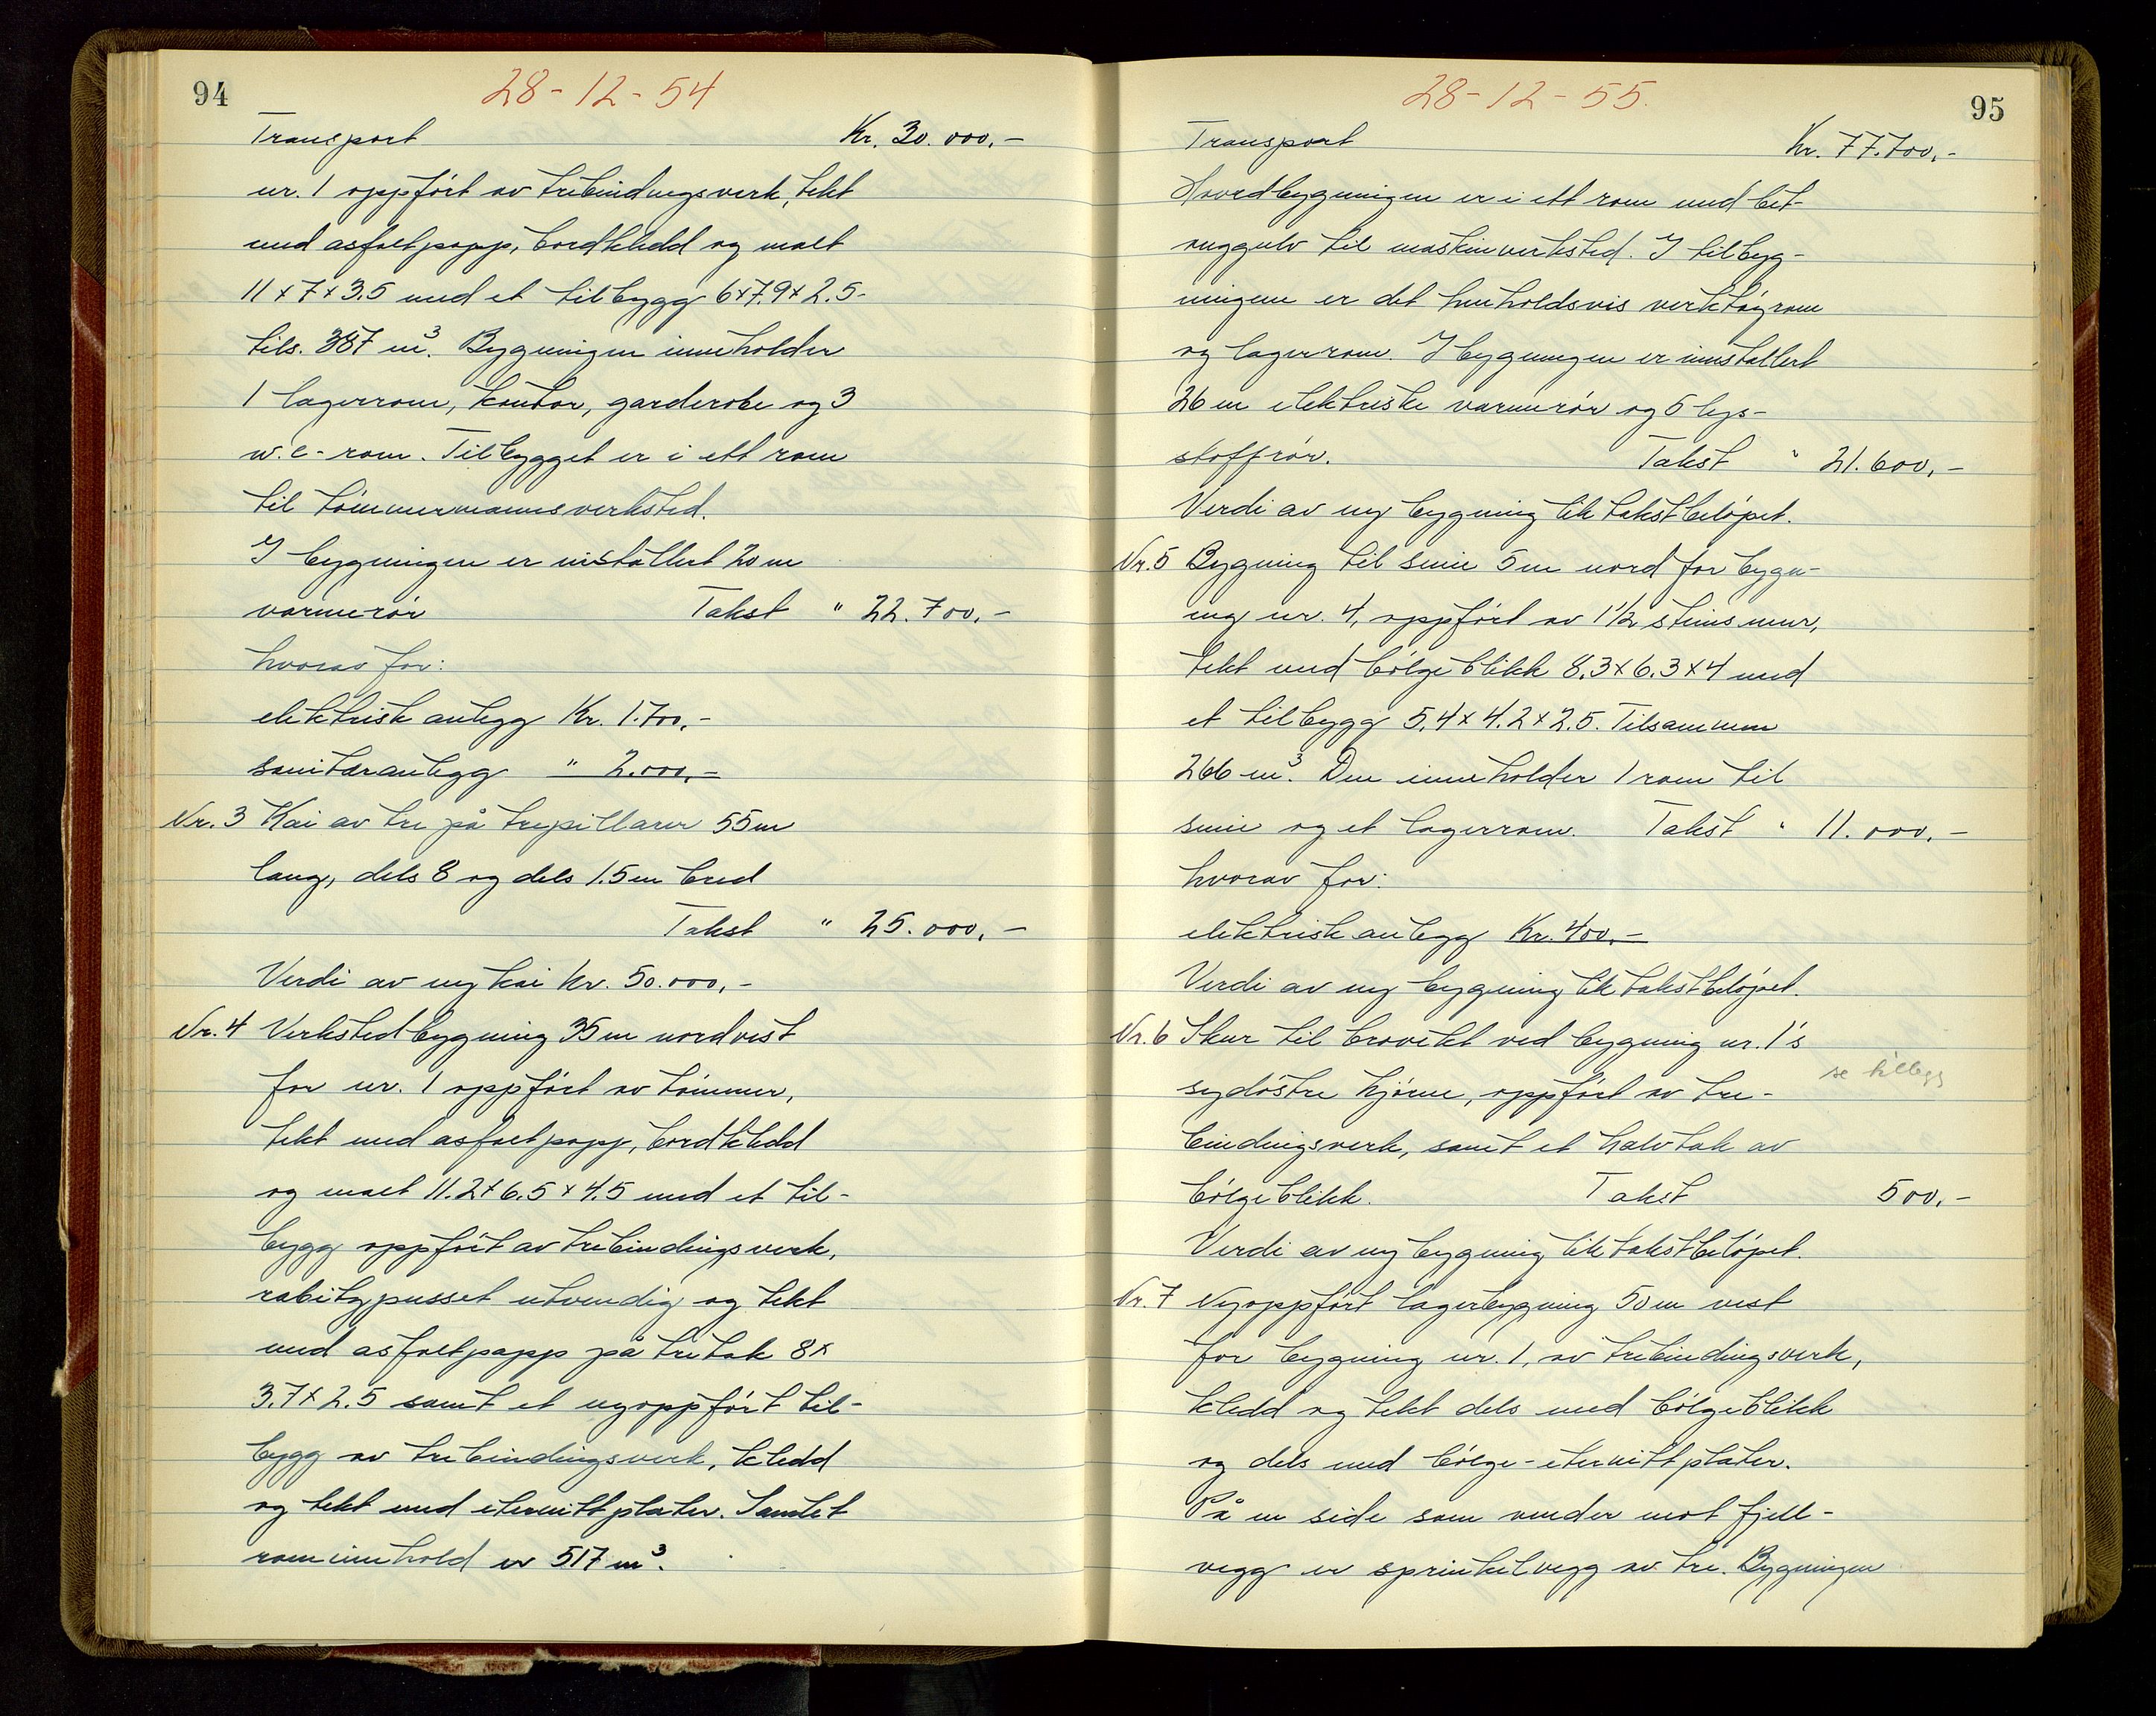 94
28-12-54
Transport Kr. 30.000,-
nr. 1 oppført av trebindingsverk, tekt
med asfaltpapp, bordkledd og malt
11x7x3.5 med et tilbygg 6x7.9x2.5-
tils. 387 m³. Bygningen inneholder
1 lagerrom, kontor, garderobe og 3
w.c-rom. Tilbygget er i ett rom
til tømmermannsverksted.
I bygningen er installert 20 m
varmerør Takst " 22.700,-
hvorav for:
elektrisk anlegg Kr. 1.700,-
sanitæranlegg " 2.000,-
Nr. 3 Kai av tre på trepillarer 55 m
lang, dels 8 og dels 1.5 m bred
Takst " 25.000,-
Verdi av ny kai kr. 50.000,-
Nr. 4 Verkstedbygning 35 m nordvest
for nr. 1 oppført av tømmer,
tekt med asfaltpapp, bordkledd
og malt 11.2x6.5x4.5 med et til-
bygg oppført av trebindingsverk,
rabitzpusset utvendig og tekt
med asfaltpapp på tretak 8x
3.7x2.5 samt et nyoppført til-
bygg av trebindingsverk, kledd
og tekt med eternittplater. Samlet
rominnhold er 517 m³.
95
28-12-55.
Transport Kr. 77.700,-
Hovedbygningen er i ett rom med bet-
onggulv til maskinverksted. I tilbyg-
ningene er det henholdsvis verktøyrom
og lagerrom. I bygningen er innstallert
26 m elektriske varmerør og 5 lys-
stoffrør. Takst " 21.600,-
Verdi av ny bygning lik takstbeløpet.
Nr. 5 Bygning til smie 5 m nord for bygn-
ing nr. 4, oppført av 1½ steins mur,
tekt med bølgeblikk 8.3x6.3x4 med
et tilbygg 5.4x4.2x2.5. Tilsammen
266 m³. Den inneholder 1 rom til
smie og et lagerrom. Takst " 11.000,-
hvorav for:
elektrisk anlegg Kr. 400,-
Verdi av ny bygning lik takstbeløpet.
Nr. 6 Skur til brovekt ved bygning nr. 1's
se tillegg
sydøstre hjørne, oppført av tre-
bindingsverk, samt et halvtak av
bølgeblikk. Takst 500,-
Verdi av ny bygning lik takstbeløpet.
Nr. 7 Nyoppført lagerbygning 50 m vest
for bygning nr. 1, av trebindingsverk,
kledd og tekt dels med bølgeblikk
og dels med bølge-eternittplater.
På en side som vender mot fjell-
vegg er sprinkelvegg av tre. Bygningen